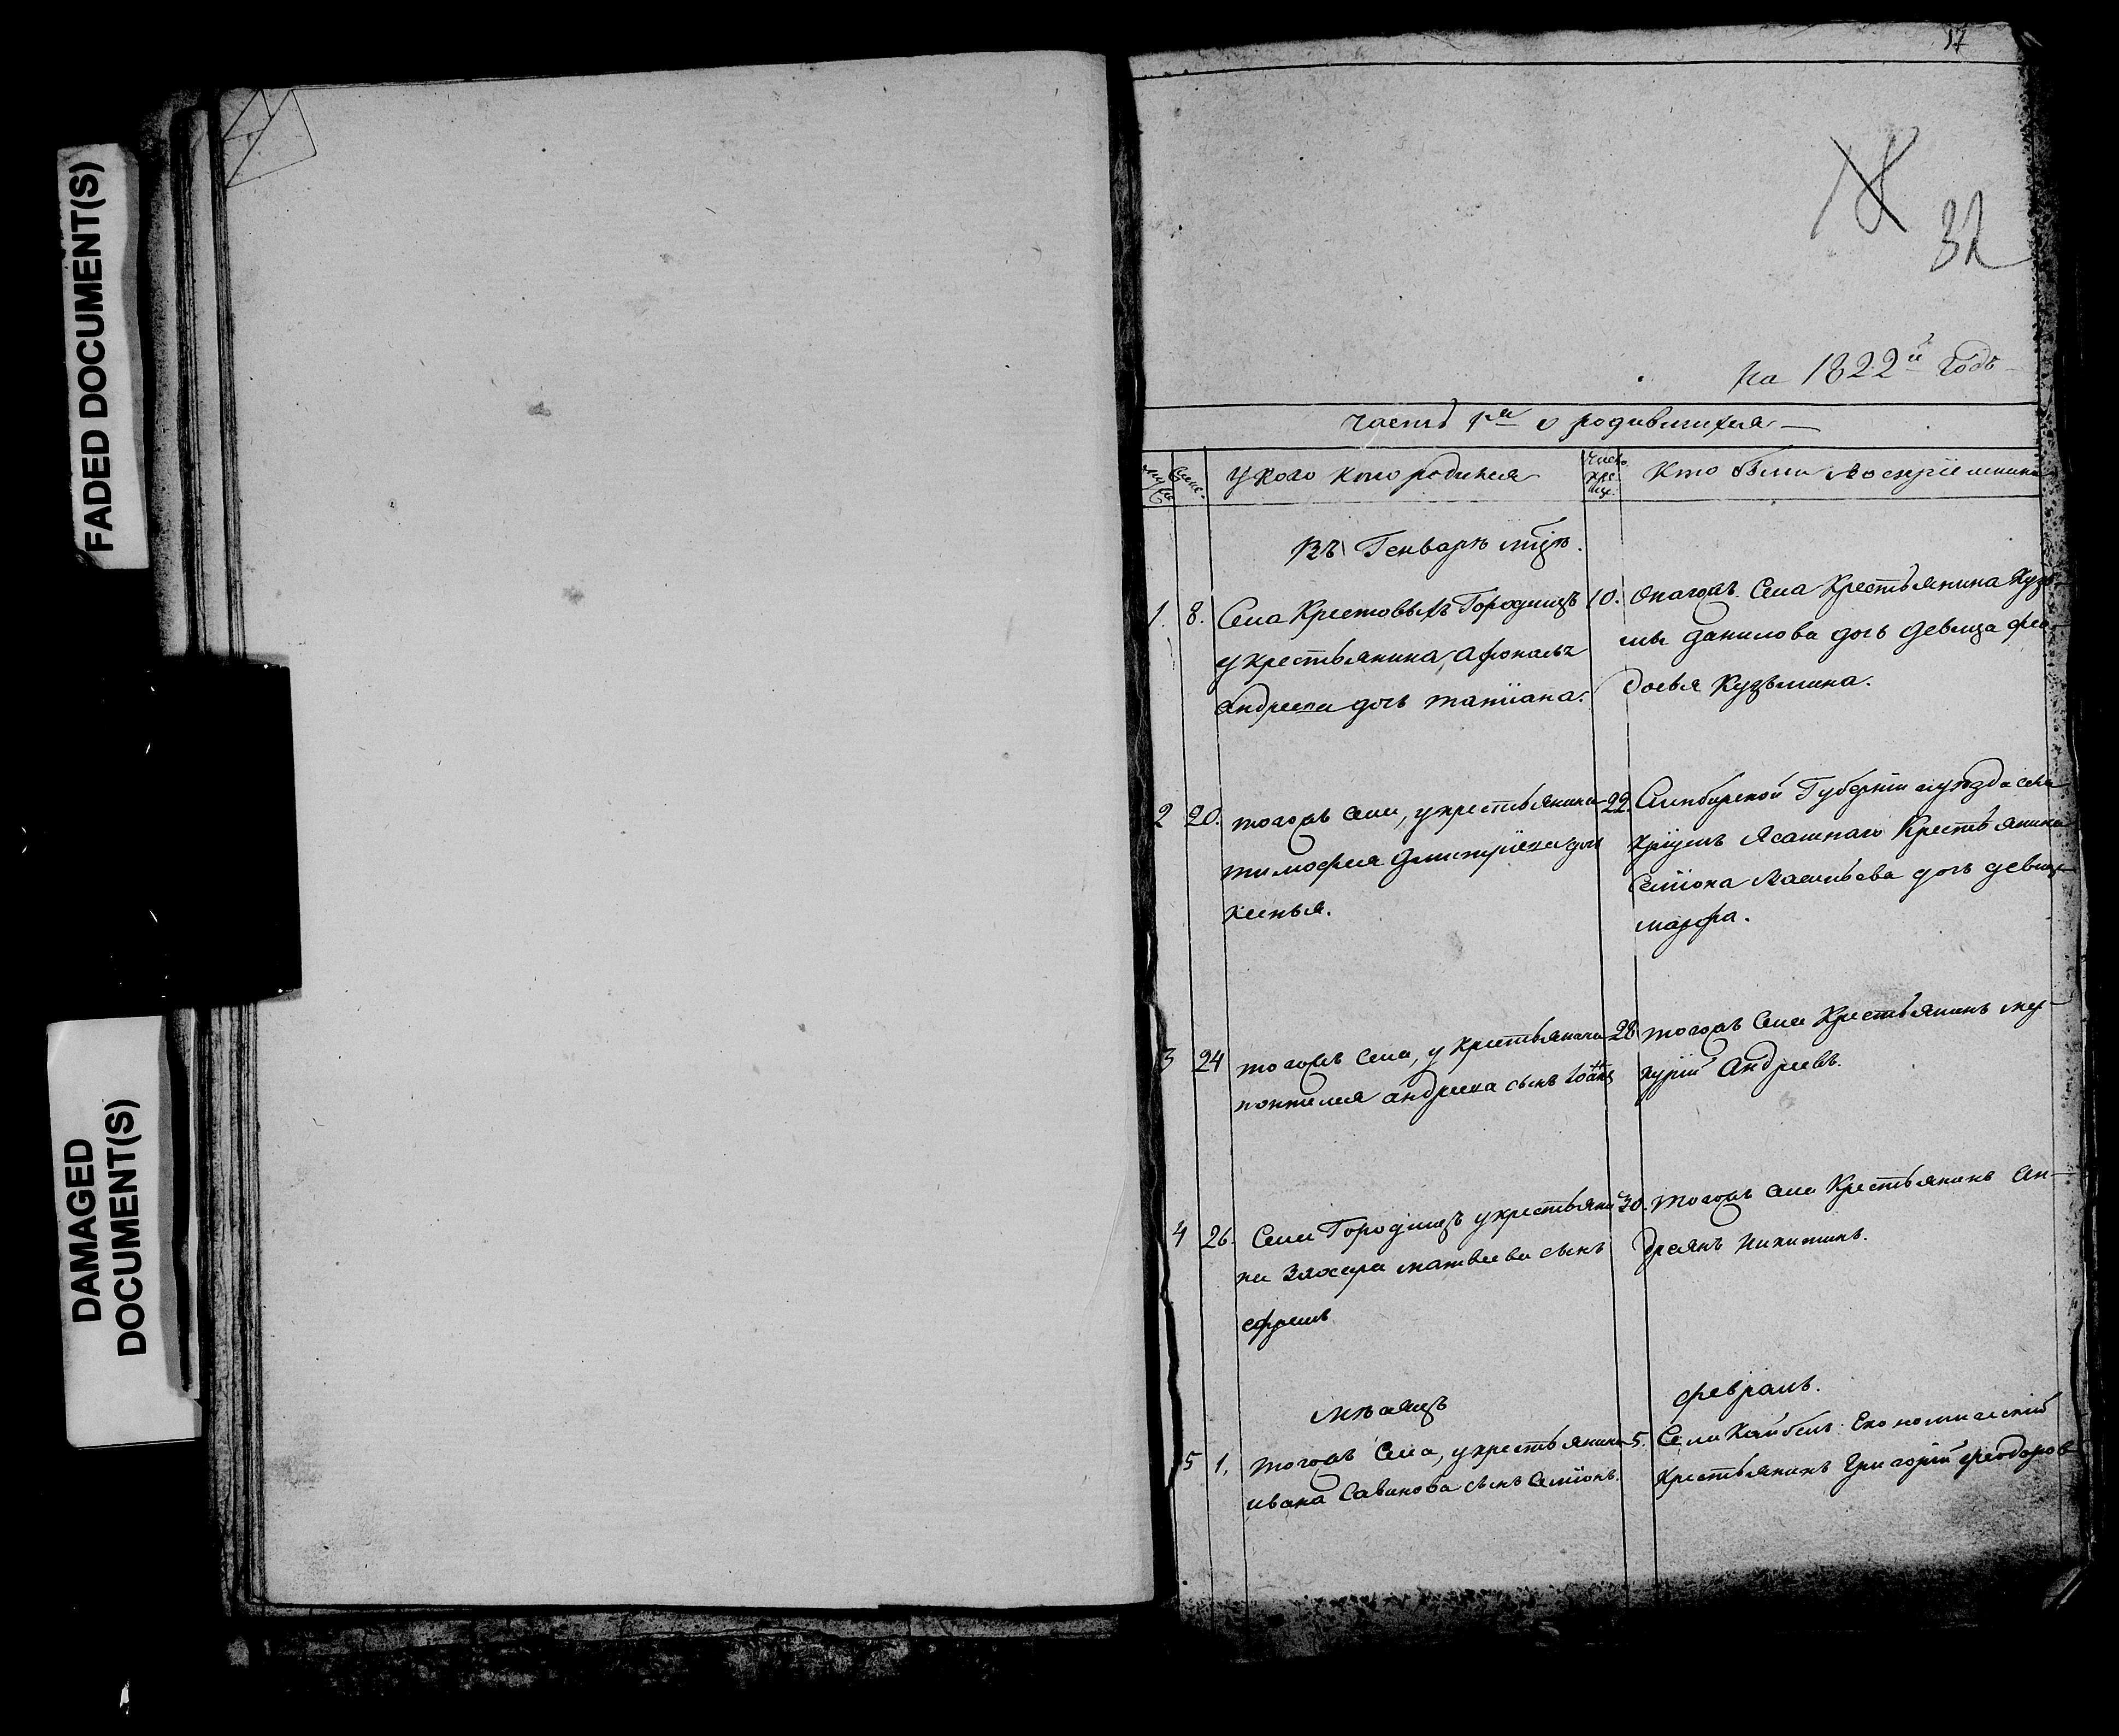 FADED DOCUMENT(S)
DAMAGED
DOCUMENT(S)
17
32
на 1822й годъ
часть 1я о родившихся
Число креще.
У кого кто родился
Кто были воспрiемники
Въ Генварѣ мцѣ.
1. 8. Села Крестовыхъ Городищъ
у крестьянина Афонасья
Андреева дочь Татiана.
10. Онагожъ Села Крестьянина Кузь-
мы Данилова дочь девица Фео-
досья Кузьмина.
2 20. тогожъ Села, у крестьянина
Тимофея Дмитрiева дочь
Ксенья.
22. Синбирской Губернiи и уѣзда села
Ясашнаго Крестьянина
Семiона Васильева дочь девица
Марфа.
3 24 тогожъ Села, у Крестьянина
Пантелея Андреева сынъ Iоаннъ
28 тогожъ Села Крестьянинъ Мер-
курiй Андреевъ.
4 26. Села Городищъ у крестьяни
на Захара Матвеева сынъ
Ефремъ
30. тогожъ Села Крестьянинъ Ан-
дреянъ Никитинъ.
Мѣсяцъ Февраль.
5 1. тогожъ Села, у крестьянина
Ивана Савинова сынъ Семiонъ.
5. Села Кайбелъ Економический
Крестьянинъ Григорiй Феодоровъ